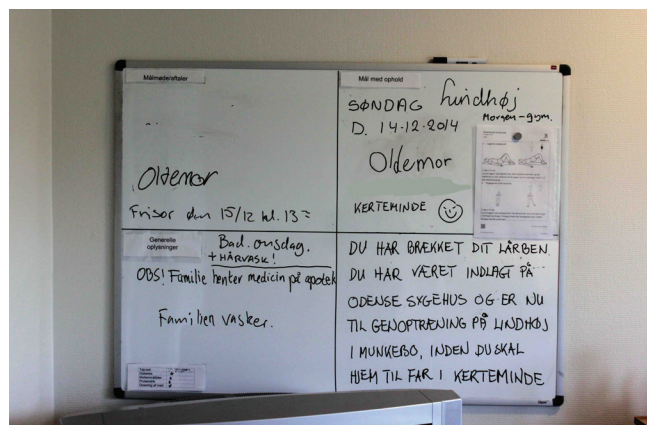 Målmøde/aftaler
Oldemor
Frisør den 15/12 kl. 13 =
Mål med ophold
SØNDAG Lindhøj
Morgen-gym.
D. 14-12-2014
Oldemor
KERTEMINDE
Generelle
oplysninger
Bad. onsdag.
+ HÅRVASK!
OBS! Familie henter medicin på apotek
Familien vasker.
DU HAR BRÆKKET DIT LÅRBEN.
DU HAR VÆRET INDLAGT PÅ
ODENSE SYGEHUS OG ER NU
TIL GENOPTRÆNING PÅ LINDHØJ
I MUNKEBO, INDEN DU SKAL
HJEM TIL FAR I KERTEMINDE